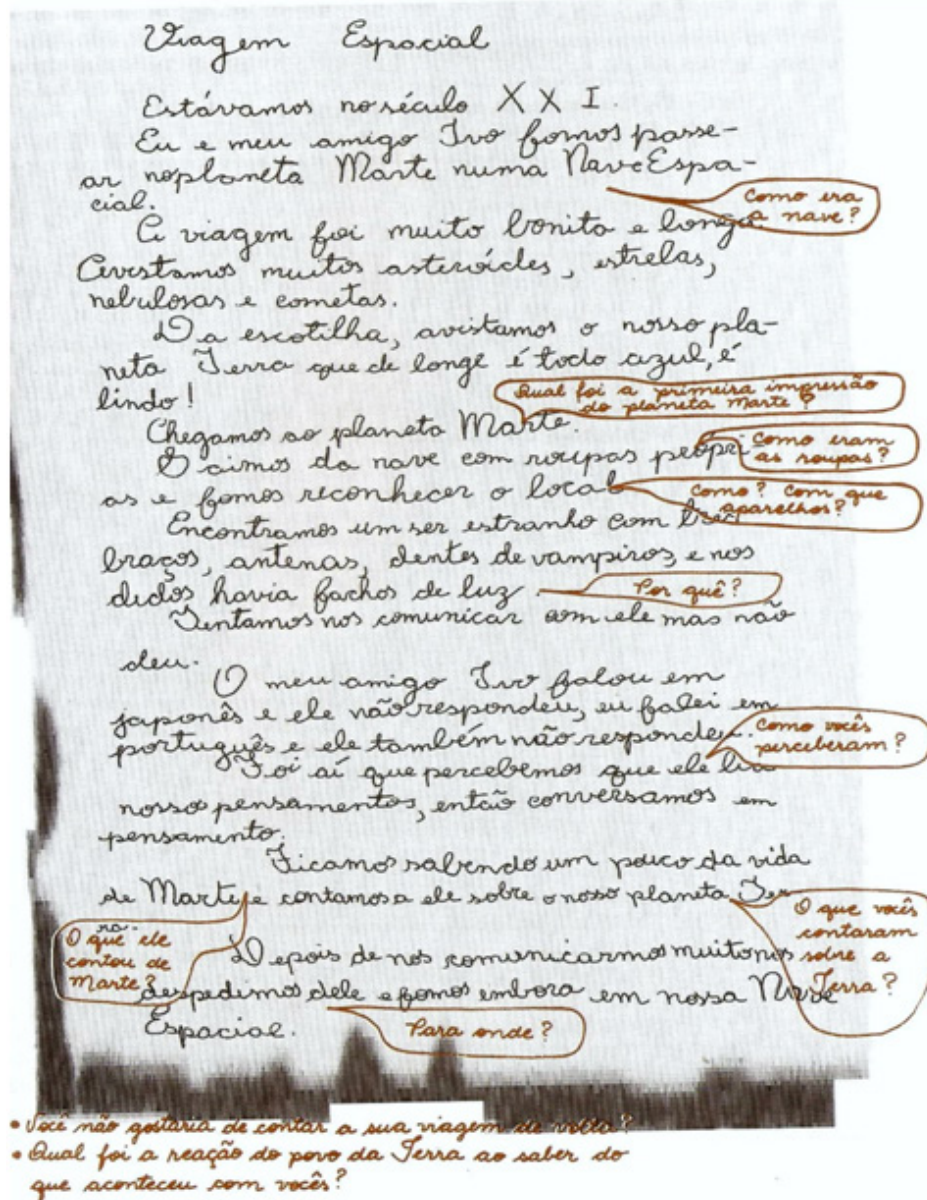 Viagem Espacial
Estávamos no século XXI
Eu e meu amigo Ivo fomos passe-
ar no planeta Marte numa Nave Espa-
cial.
Como era
a nave?
A viagem foi muito bonita e longa.
Avistamos muitos asteroides, estrelas,
nebulosas e cometas.
Da escotilha, avistamos o nosso pla-
neta Terra que de longe é todo azul, é
lindo!
Qual foi a primeira impressão
do planeta Marte?
Chegamos ao planeta Marte.
Saimos da nave com roupas própri-
Como eram
as roupas?
as e fomos reconhecer o local
Como? Com que
aparelhos?
Encontramos um ser estranho com
braços, antenas, dentes de vampiros, e nos
dedos havia fachos de luz
Por quê?
Tentamos nos comunicar com ele mas não
deu.
O meu amigo Ivo falou em
japonês e ele não respondeu, eu falei em
português e ele também não respondeu.
Como vocês
perceberam?
Foi aí que percebemos que ele lia
nosso pensamentos, então conversamos em
pensamento.
Ficamos sabendo um pouco da vida
de Marte e contamos a ele sobre o nosso planeta Ter
ra.
O que ele
contou de
Marte?
O que vocês
contaram
sobre a
Terra?
Depois de nos comunicarmos muito nos
despedimos dele e fomos embora em nossa Nave
Espacial.
Para onde?
• Você não gostaria de contar a sua viagem de volta?
• Qual foi a reação do povo da Terra ao saber do
que aconteceu com vocês?